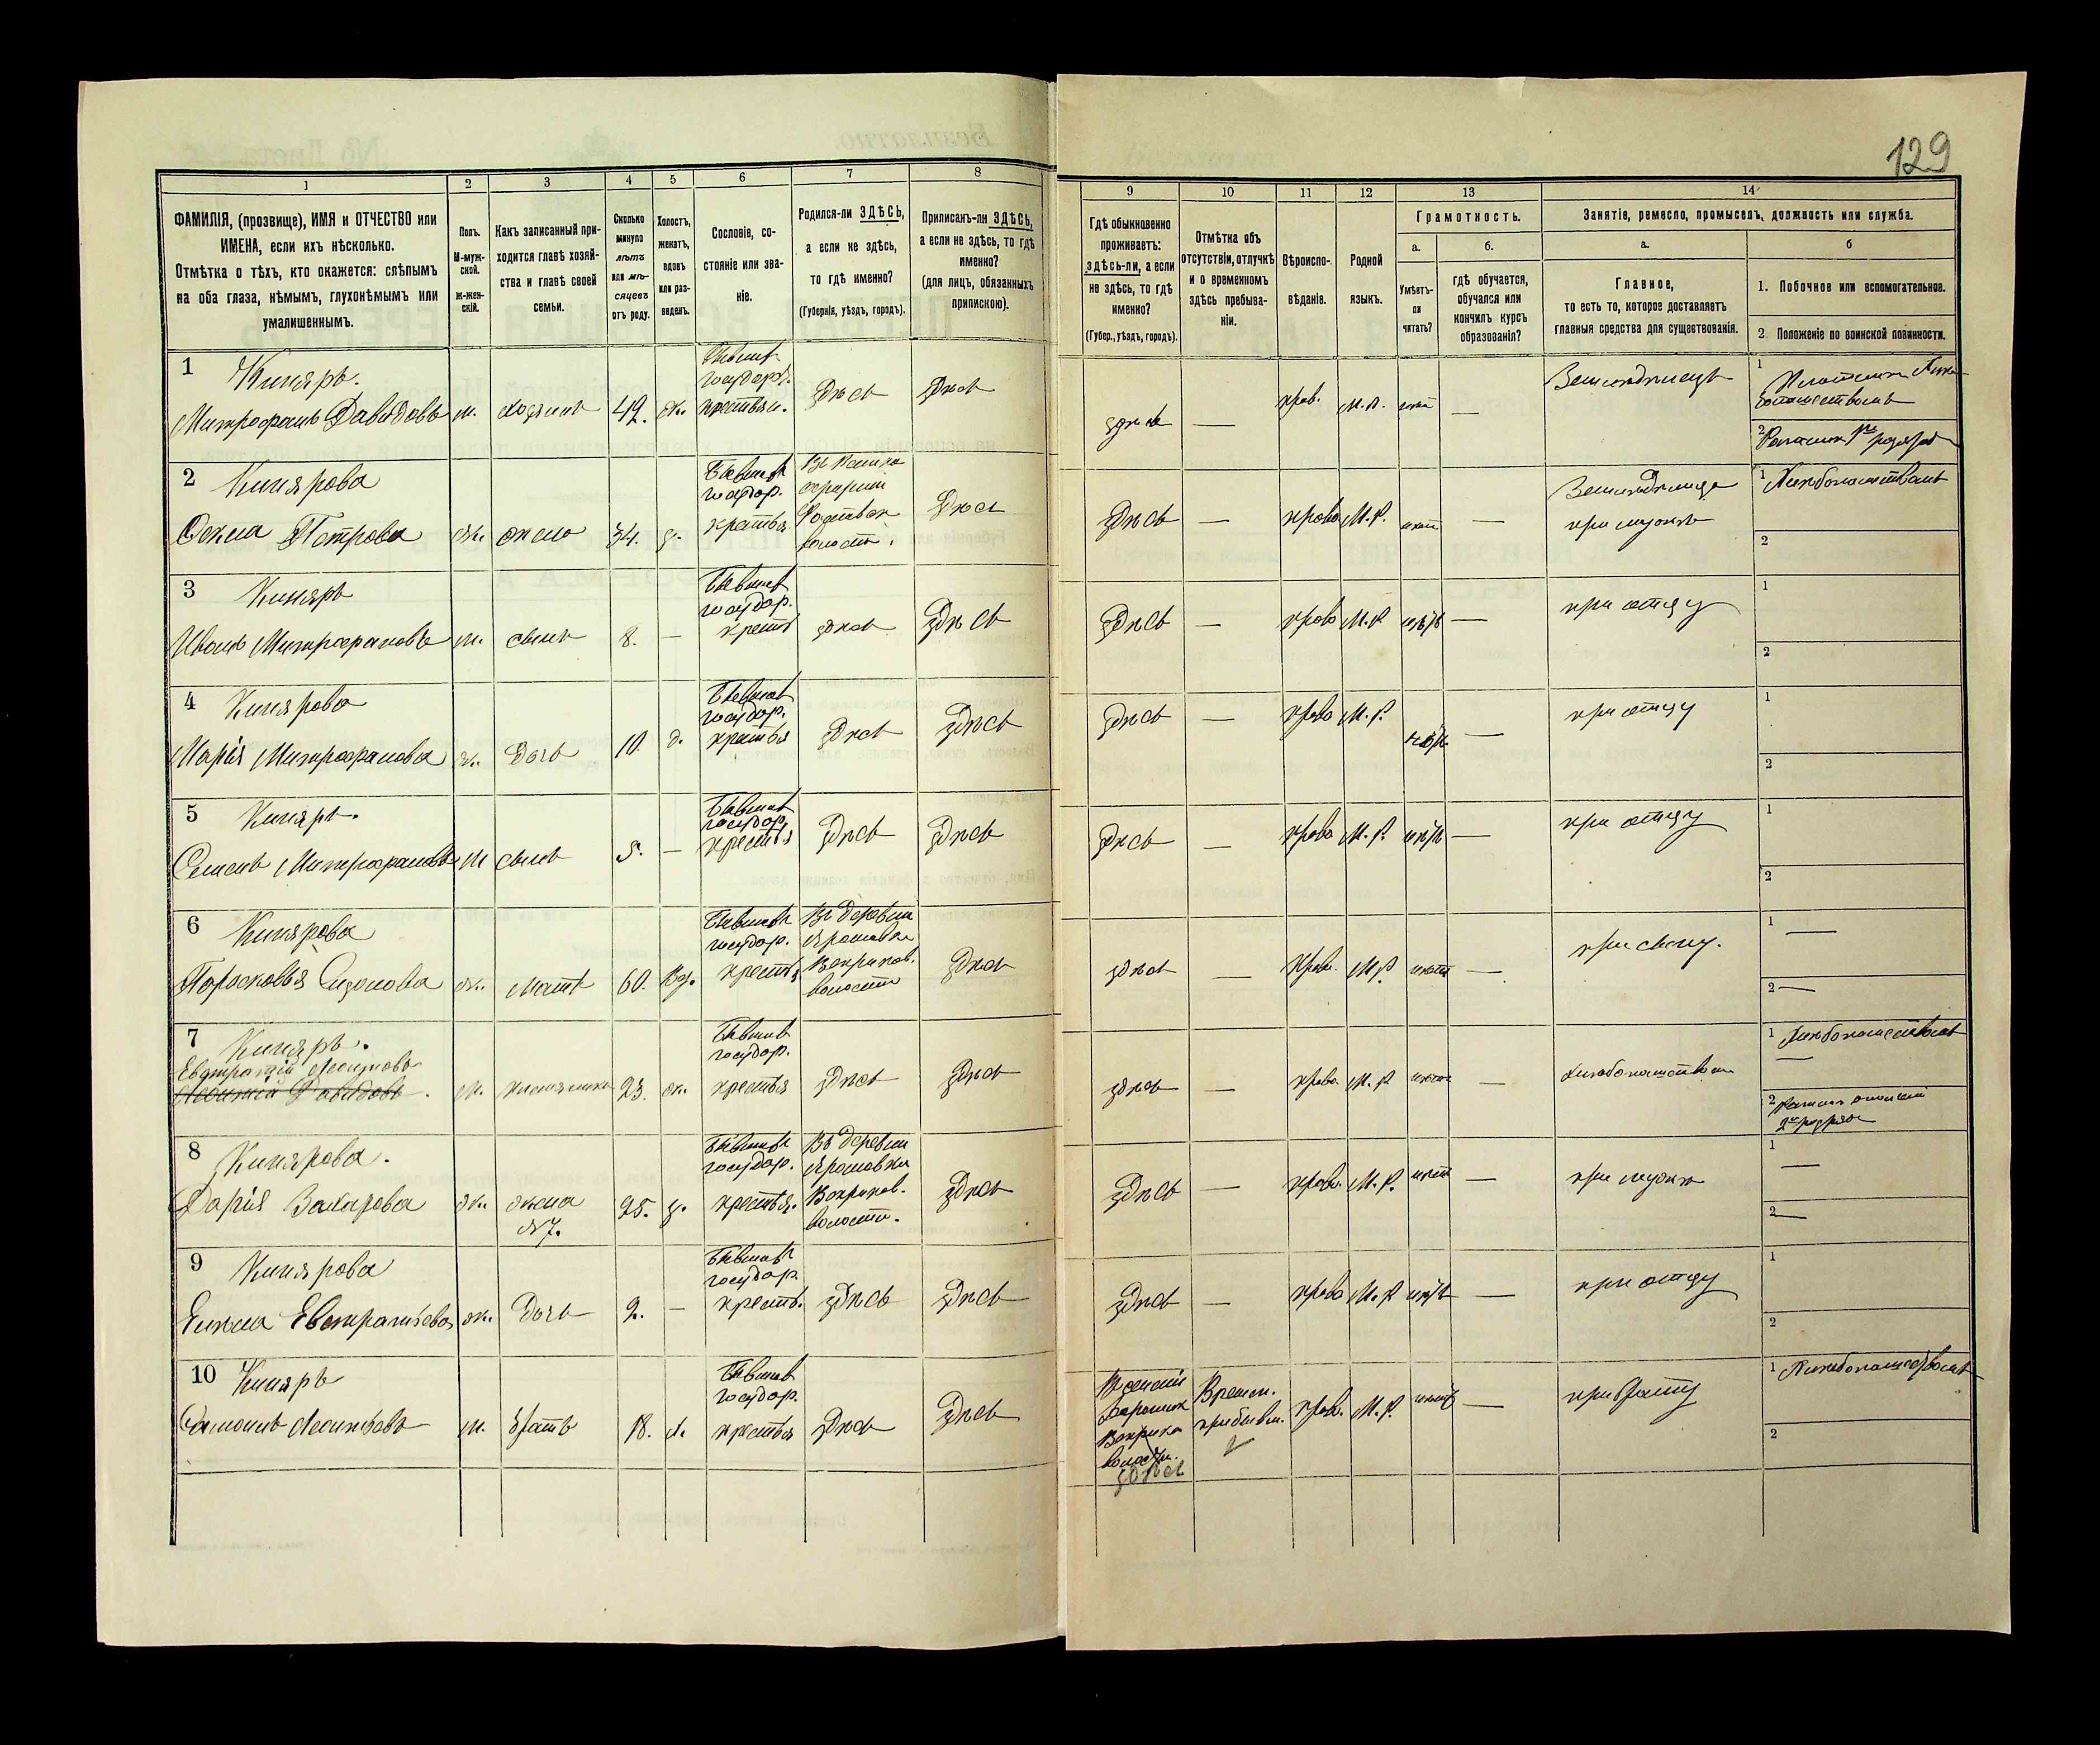 129
1
2
3
4
5
6
7
8
9
10
11
12
13
14
ФАМИЛІЯ, (прозвище), ИМЯ и ОТЧЕСТВО или
ИМЕНА, если ихъ нѣсколько.
Отмѣтка о тѣхъ, кто окажется: слѣпымъ
на оба глаза, нѣмымъ, глухонѣмымъ или
умалишеннымъ.
Полъ.
М-муж-
ской.
Ж-жен-
скій.
Какъ записанный при-
ходится главѣ хозяй-
ства и главѣ своей
семьи.
Сколько
минуло
лѣтъ
или мѣ-
сяцевъ
отъ роду.
Холостъ,
женатъ,
вдовъ
или раз-
веденъ.
Сословіе, со-
стояніе или зва-
ніе.
Родился-ли ЗДѢСЬ,
а если не здѣсь,
то гдѣ именно?
(Губернія, уѣздъ, городъ).
Приписанъ-ли ЗДѢСЬ,
а если не здѣсь, то гдѣ
именно?
(для лицъ, обязанныхъ
припискою).
Гдѣ обыкновенно
проживаетъ:
здѣсь-ли, а если
не здѣсь, то гдѣ
именно?
(Губер., уѣздъ, городъ).
Отмѣтка объ
отсутствіи, отлучкѣ
и о временномъ
здѣсь пребыва-
ніи.
Вѣроиспо-
вѣданіе.
Родной
языкъ.
Грамотность.
а.
б.
Умѣетъ-
ли
читать?
гдѣ обучается,
обучался или
кончилъ курсъ
образованія?
Занятіе, ремесло, промыселъ, должность или служба.
а.
б
Главное,
то есть то, которое доставляетъ
главныя средства для существованія.
1. Побочное или вспомогательное.
2 Положеніе по воинской повинности.
1
Киняръ.
Митрофанъ Давидовъ
м.
хозяинъ
42.
ж.
Бывшій
государ.
крестьян.
здѣсь
здѣсь
здѣсь
—
прав.
М.Р.
нѣтъ
—
Земледѣлецъ
1
2
2
Кинярова
Петрова
ж.
жена
34.
з.
Бывшій
государ.
крестья
волости.
здѣсь
здѣсь
—
право
М.Р.
нѣтъ
—
Земледѣлица
при мужѣ
1
2
3
Киняръ
Иванъ Митрофановъ
м.
сынъ
8.
—
Бывшій
государ.
крест
здѣсь
здѣсь
здѣсь
—
право
М.Р
—
при отцу
1
2
4
Кинярова
Марія Митрофанова
ж.
Дочь
10.
д.
Бывшій
государ.
крестья
здѣсь
здѣсь
здѣсь
—
право
М.Р.
—
при отцу
1
2
5
Киняръ.
Семенъ Митрофановъ
м
сынъ
5.
—
Бывшій
государ.
крестья
здѣсь
здѣсь
здѣсь
—
право
М.Р.
—
при отцу
1
2
6
Кинярова
Парасковья
ж.
Мать
60.
Вд.
Бывшій
государ.
крестья
Въ Деревни
Ярошовка
волости
здѣсь
здѣсь
—
Прав.
М.Р
нѣтъ
—
при сыну.
1 —
2 —
7
Киняръ.
Давидовъ
м.
племянникъ
23.
ж.
Бывшій
государ.
крестья
здѣсь
здѣсь
здѣсь
—
право
М.Р
—
1
—
2
8
Кинярова.
Дарія Захарова
ж.
жена
№7.
25.
з.
Бывшій
государ.
крестья.
Въ Деревни
Ярошовка
волости.
здѣсь
здѣсь
—
право.
М.Р.
нѣтъ
—
при мужѣ
1
—
2 —
9
Кинярова
ж.
Дочь
2.
—
Бывшій
государ.
кресть.
здѣсь
здѣсь
здѣсь
—
право
М.Р
—
при отцу
1
2
10
Киняръ
м.
братъ
18.
х.
Бывшій
государ.
крестья
здѣсь
здѣсь
волости.
здѣсь
Времен.
прибывш.
прав.
М.Р.
—
при брату
1
2